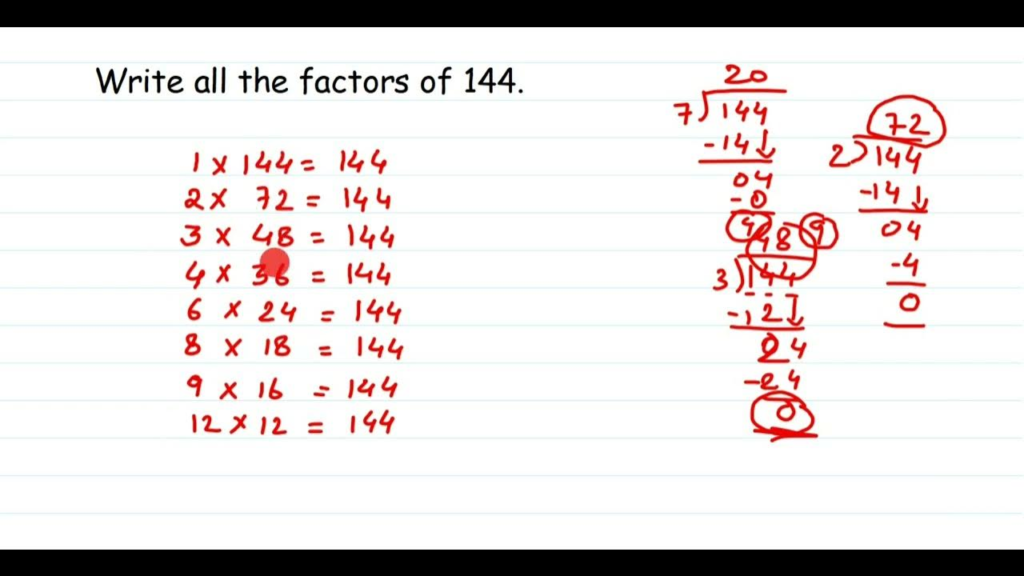 Write all the factors of 144.
1 x 144 = 144
2 x 72 = 144
3 x 48 = 144
4 x 36 = 144
6 x 24 = 144
8 x 18 = 144
9 x 16 = 144
12 x 12 = 144
20
7)144
-14↓
04
-0
4
72
2)144
-14↓
04
-4
0
48 9
3)144
-12↓
24
-24
0